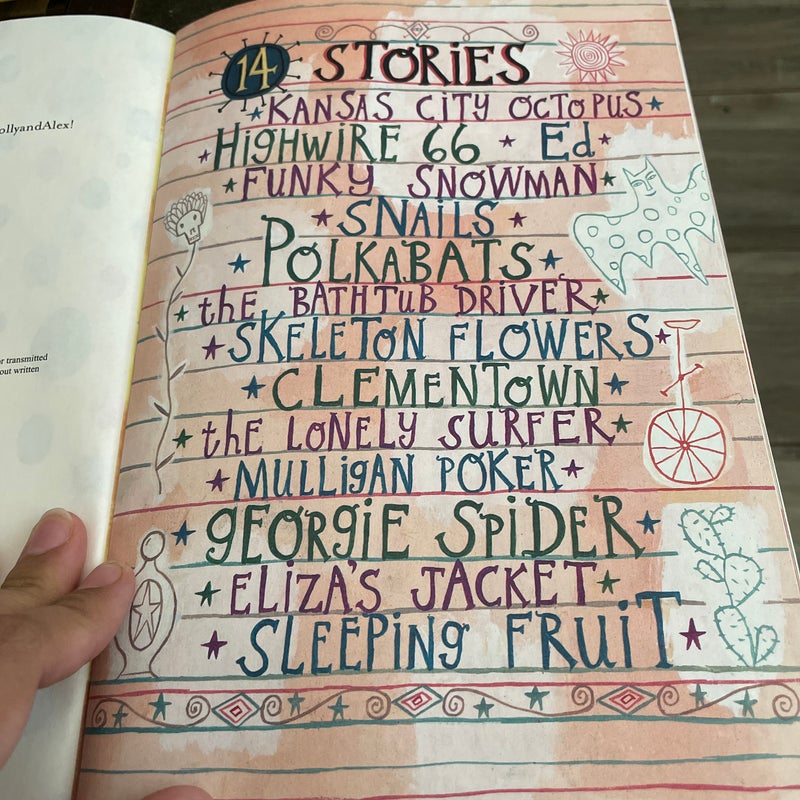 ollyandAlex!
r transmitted
out written
14 STORiES
KANSAS CiTY OCTOPUS
HigHWiRE 66 Ed
FUNKY SNOWMAN
SNAiLS
POLKABATS
the BATHTUB DRiVER
SKELETON FLOWERS
CLEMENTOWN
thE LONELY SURFER
MULLigAN POKER
gEORgiE SPiDER
ELiZA'S JACKET
SLEEPiNg FRUiT